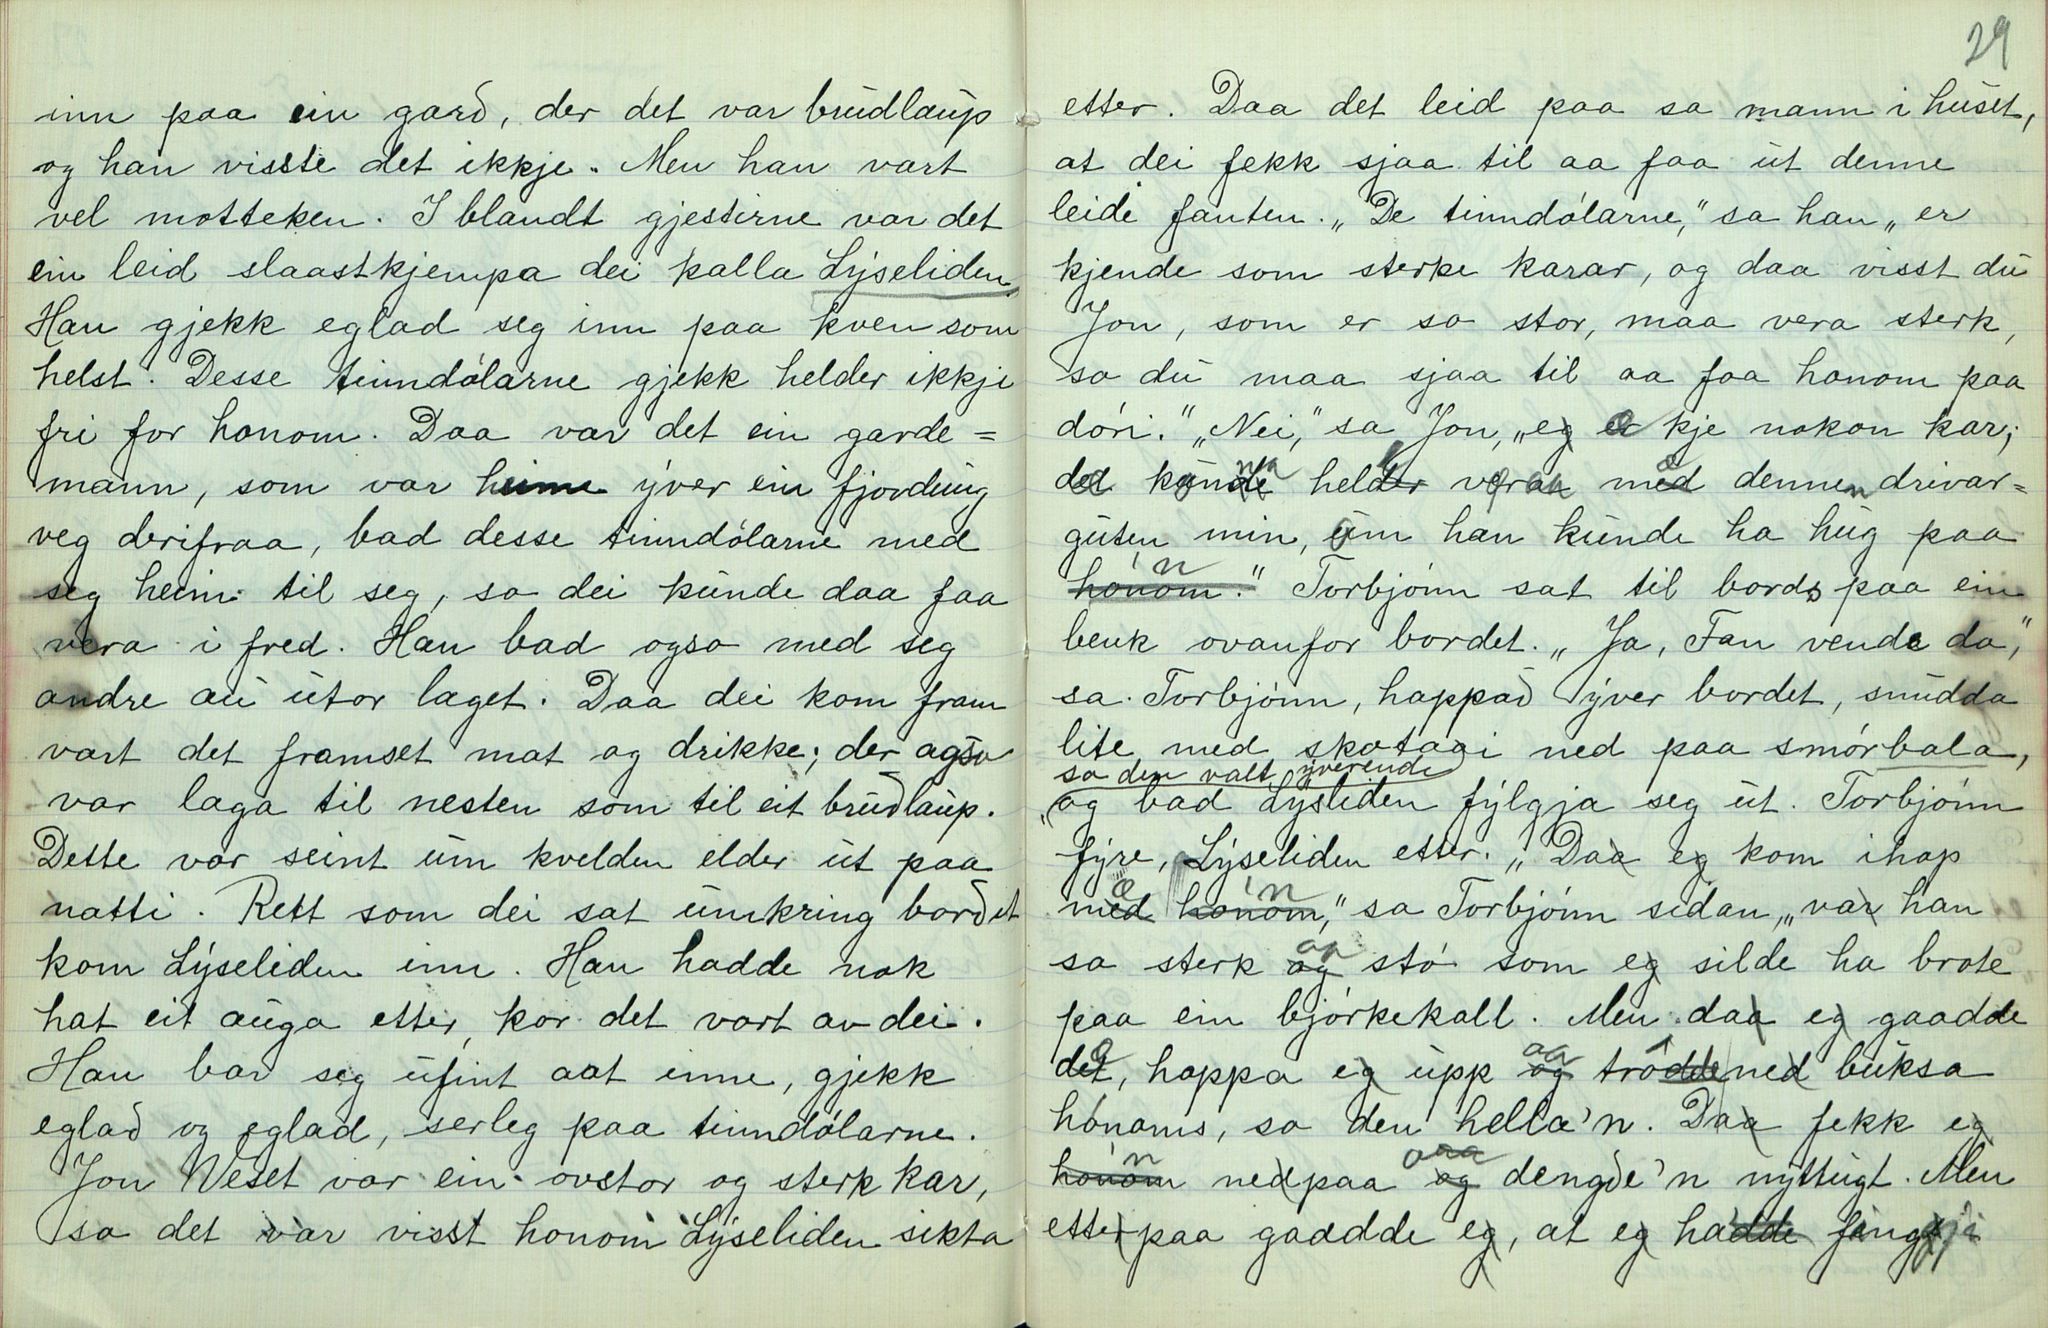 inn paa ein garð, der det var brudlaup
og han visste det ikkje. Men han vart
vel motteken. I blandt gjestirne var det
ein leid slaastkjempa dei kalla Lyseliden.
Han gjekk eglad seg inn paa kven som
helst. Desse tinndólarne gjekk helder ikkje
fri for honom. Daa var det ein garde=
mann, som var heime yver ein fjordung
veg derifraa, bad desse tinndólarne med
seg heim til seg, so dei kunde daa faa
vera i fred. Han bad ogso med seg
andre au utor laget. Daa dei kom fram
vart det framset mat og drikke; der ogso
var laga til nesten som til eit bruðlaup.
Dette var seint um kvelden elder ut paa
natti. Rett som dei sat umkring borðet
kom Lyseliden inn. Han hadde nok
hat eit auga etter, kor det vart av dei.
Han bar seg ufint aat inne, gjekk
eglað og eglad, serleg paa tinndólarne.
Jon Veset var ein ovstor og sterk kar,
so det var visst honom Lyseliden sikta
29
etter. Daa det leid paa sa mann i huset,
at dei fekk sjaa til aa faa ut denne
leide fanten. „De tinndólarne," sa han „er
kjende som sterke karar, og daa visst du
Jon, som er so stor, maa vera sterk,
so du maa sjaa til aa faa honom paa
dóri." „Nei," sa Jon, „eg er kje nokon kar;
det kunde helder vera med dennen drivar=
guten min, um han kunde ha hug paa
'n
honom." Torbjónn sat til bords paa ein
benk ovanfor bordet. „Ja, Fan vende da,"
sa Torbjónn, happað yver bordet, snudda
lite med skotaai ned paa smórbala,
so den valt yverende
og bad Lysliden fylgja seg ut. Torbjónn
fyre, Lyseliden etter. „Daa eg kom ihop
'n
med honom," sa Torbjónn sidan, „var han
aa
so sterk og stó som eg silde ha brote
paa ein bjórkekall. Men daa eg gaadde
aa
det, hoppa eg upp og tródde ned buksa
hónoms, so den hella'n. Daa fekk eg
'n
honom nedpaa og dengde'n nyttugt. Men
etterpaa gaadde eg, at eg hadde